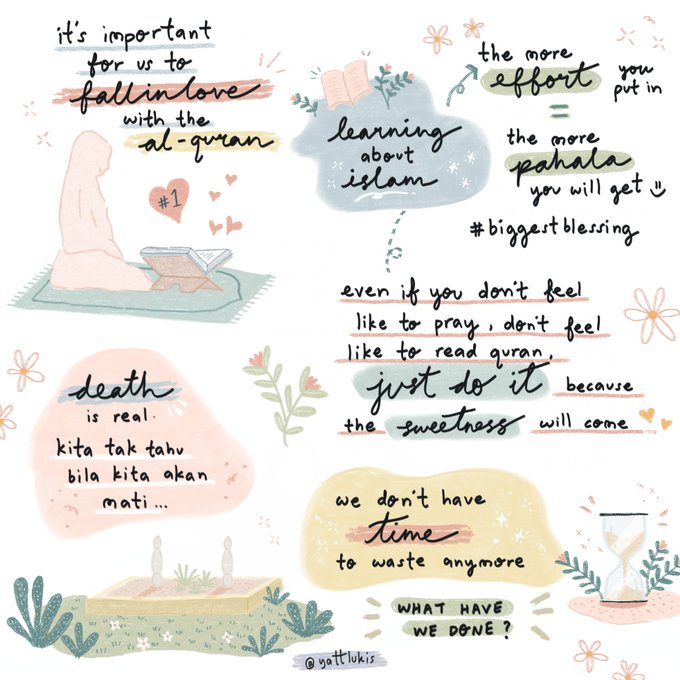 it's important
for us to
fall in love
with the
al-quran
#1
learning
about
islam
the more
effort you
put in
=
the more
pahala
you will get :)
#biggestblessing
even if you don't feel
like to pray, don't feel
like to read quran,
just do it because
the sweetness will come
death
is real.
kita tak tahu
bila kita akan
mati...
we don't have
time
to waste anymore
WHAT HAVE
WE DONE?
@yattlukis